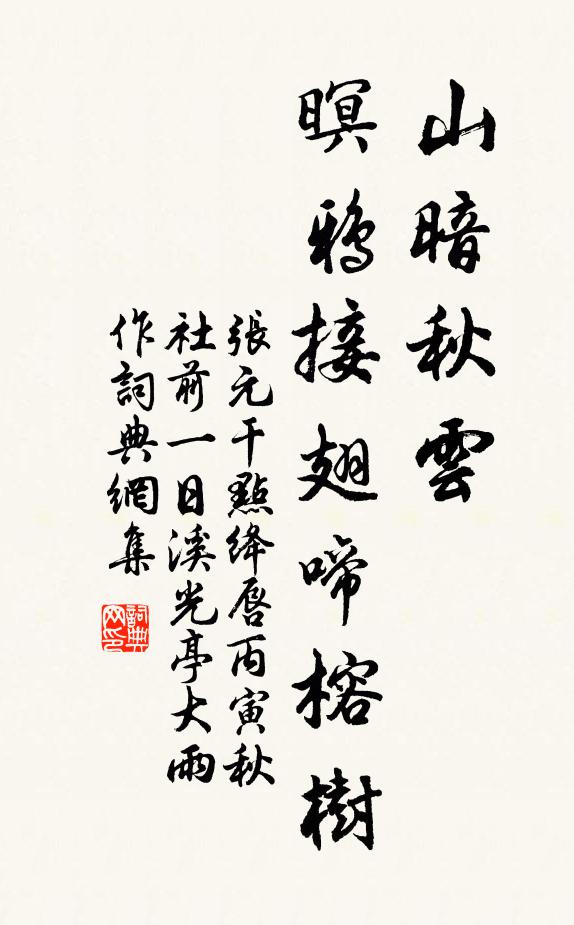 山暗秋雲
暝鴉接翅啼榕樹
張元干點絳唇丙寅秋
社前一日溪光亭大雨
作詞典網集
詞典网印